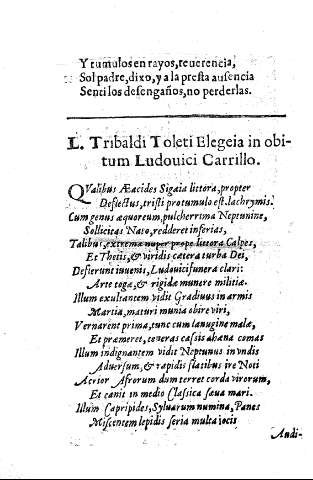 Y tumulos en rayos, reuerencia,
Sol padre, dixo, y a la presta ausencia
Senti los desengaños, no perderlas.
L. Tribaldi Toleti Elegeia in obi-
tum Ludouici Carrillo.
Qualibus Æacides Sigaia littora, propter
Deflectus, tristi protumulo est. lachrymis.
Cum genus æquoreum, pulcherrima Neptunine,
Sollicitas Naso, redderet inferias,
Talibus, extrema nuper prope littora Calpes,
Et Thetis, & viridis cætera turba Dei,
Defierunt iuuenis, Ludouici funera clari:
Arte toga, & rigidæ munere militiæ.
Illum exultantem vidit Gradiuus in armis
Martia, maturi munia obire viri,
Vernarent prima, tunc cum lanugine malæ,
Et præmeret, teneras cassis ahæna comas
Illum indignantem vidit Neptunus in vndis
Aduersum, & rapidis flatibus ire Noti
Acrior Afrorum dum terret corda virorum,
Et canit in medio Classica sæua mari.
Illum Capripides, Syluarum numina, Panes
Miscentem lepidis seria multa iocis
Audi-